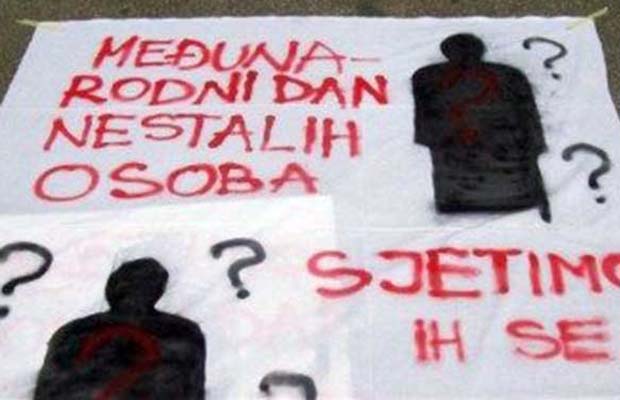 MEĐUNA-
RODNI DAN
NESTALIH
OSOBA
?
?
?
SJETIMO
IH SE
?
?
?
?